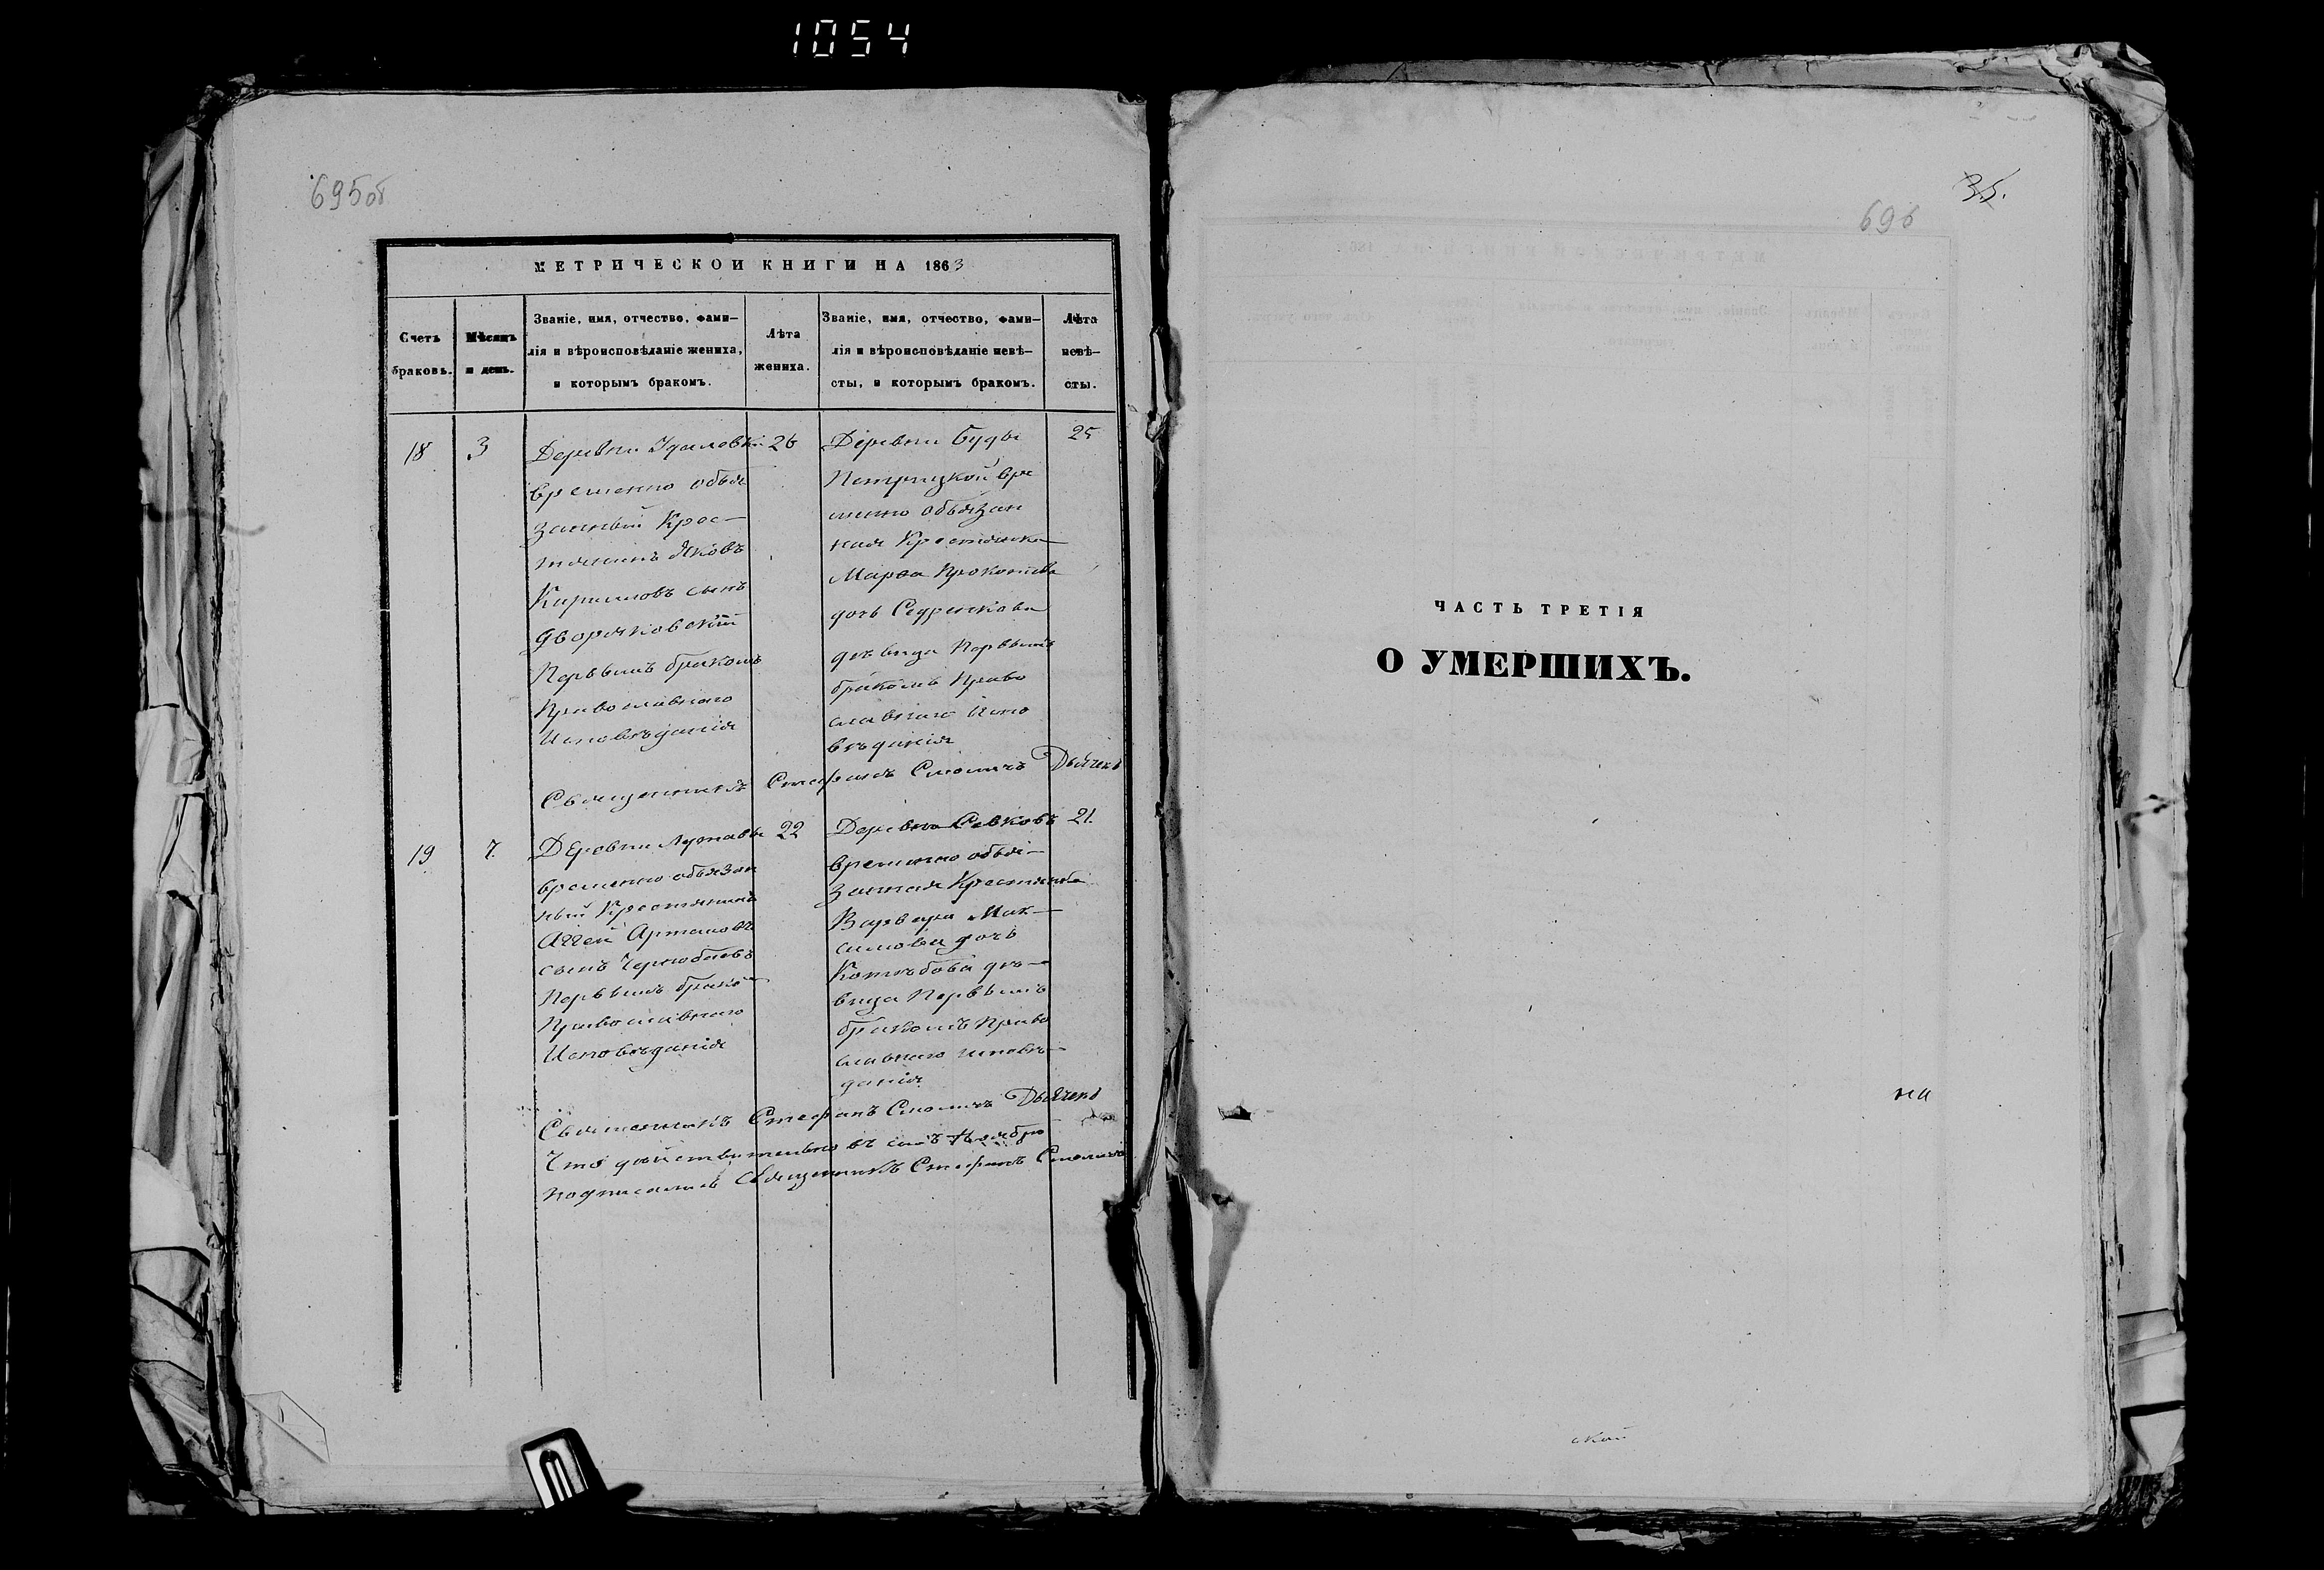 1054
695об
МЕТРИЧЕСКОЙ КНИГИ НА 1863
Счетъ браковъ.
Мѣсяцъ и день.
Званіе, имя, отчество, фами-
лія и вѣроисповѣданіе жениха,
и которымъ бракомъ.
Лѣта жениха.
Званіе, имя, отчество, фами-
лія и вѣроисповѣданіе невѣ-
сты, и которымъ бракомъ.
Лѣта невѣ-
сты.
18
3
Деревни
временно объя
занный Крес-
тянинъ Яковъ
Кириловъ сынъ
Дворяковскій
Первымъ бракомъ
Православнаго
Исповѣданія
26
Деревни Буды
Петрицкой вре
менно объязан
ная Крестянка
Марѳа
дочь
дѣвица Первымъ
бракомъ Право
славнаго Испо
вѣданія
25
Священникъ Стефанъ Смоличъ Дьячекъ
19
7.
Деровни
временно объязан
ный Крестянинъ
Аггей
сынъ
Первымъ брако
Православнаго
Исповѣданія
22
Деревни Севковъ
временно объя-
занная Крестянка
Варвара Мак-
симова дочь
дѣ-
вица Первымъ
бракомъ Право
славнаго исповѣ-
данія
21.
Священникъ Стефанъ Смоличъ Дьячекъ
Что дѣйствительно въ семъ Ноябрѣ
подписались Священникъ Стефанъ Смоличъ
35.
696
ЧАСТЬ ТРЕТІЯ
О УМЕРШИХЪ.
на
ской